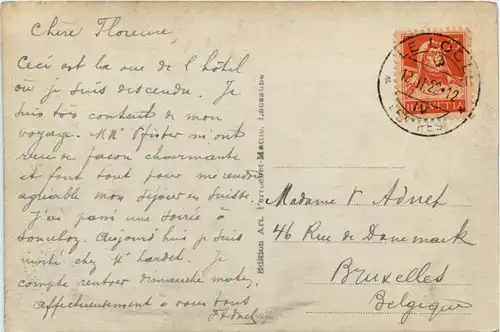 Chère Florence,
Ceci est la vue de l'hôtel
où je suis descendu. Je
suis très content de mon
voyage. MM Pfister m'ont
reçu de façon charmante
et font tout pour me rendre
agréable mon séjour en Suisse.
J'ai passé une soirée à
Sonceboz. Aujourd'hui je suis
invité chez Mr Sardet. Je
compte rentrer dimanche matin.
affectueusement à vous tous
Edition Art. Perrochet-Matile, Lausanne
LE LOCLE
HELVETIA
Madame V Adnet
46 Rue de Danemark
Bruxelles
Belgique